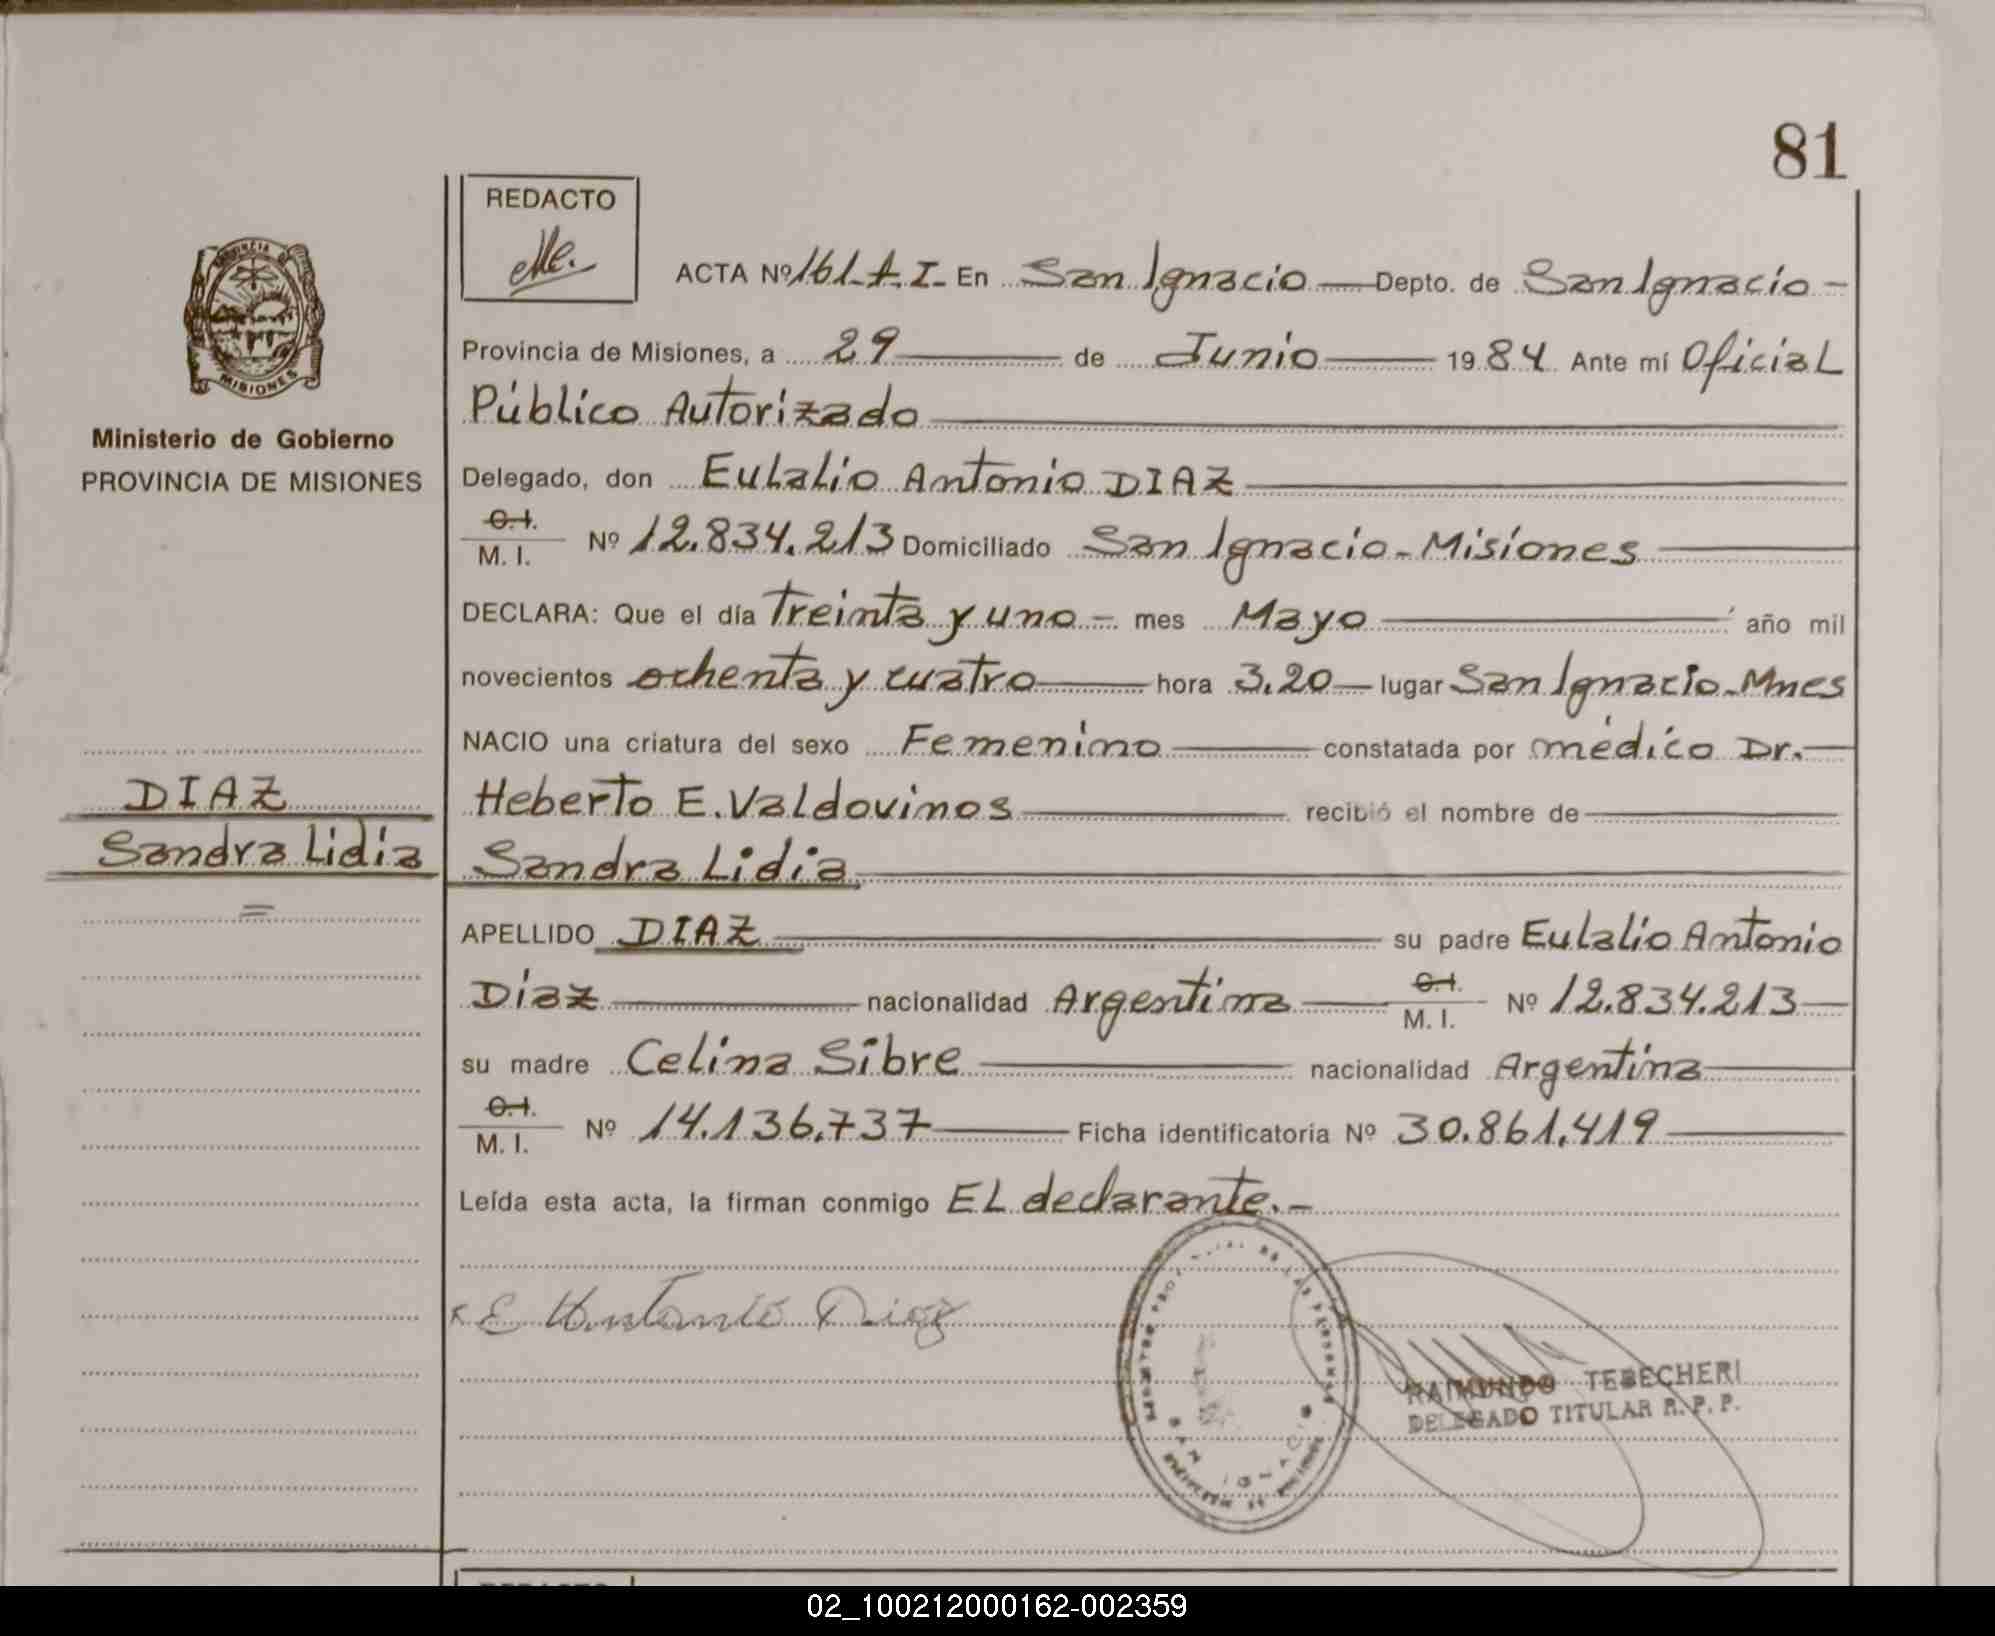 81
REDACTO
ACTA Nº 161-A.I- En San Ignacio Depto. de San Ignacio-
Provincia de Misiones, a 29 de Junio 1984. Ante mí Oficial
Público Autorizado
PROVINCIA DE
MISIONES
Ministerio de Gobierno
PROVINCIA DE MISIONES
Delegado, don Eulalio Antonio DIAZ
C.I.
M. I. Nº 12.834.213 Domiciliado San Ignacio-Misiones
DECLARA: Que el día Treinta y uno- mes Mayo año mil
novecientos ochenta y cuatro hora 3.20 lugar San Ignacio-Mnes
NACIO una criatura del sexo Femenino constatada por médico Dr.
DIAZ
Heberto E. Valdovinos recibió el nombre de
Sandra Lidia
Sandra Lidia
APELLIDO DIAZ su padre Eulalio Antonio
Díaz nacionalidad Argentina C.I.
M. I. Nº 12.834.213
su madre Celina Sibre nacionalidad Argentina
C.I.
M. I. Nº 14.136.737 Ficha identificatoria Nº 30.861.419
Leída esta acta, la firman conmigo EL declarante.-
E Antonio Diaz
DE LAS PERSONAS
SAN IGNACIO
RAIMUNDO TEBECHERI
DELEGADO TITULAR R. P. P.
02_100212000162-002359